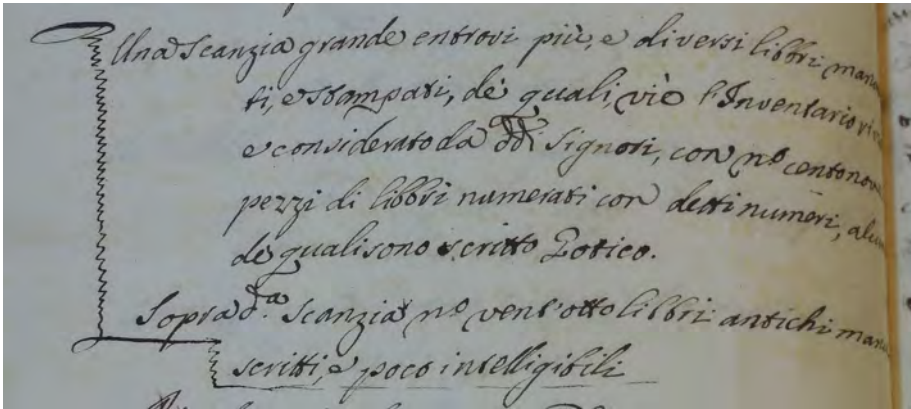 Una Scanzia grande entrovi più, e diversi libbri
ti, e stampati, de quali, vi è l'Inventario
e considerato da dd.i Signori, con n.o
pezzi di libbri numerati con detti numeri,
de quali sono scritto Gotico.
Sopra d.a Scanzia n.o vent'otto libbri antichi
scritti, e poco intelligibili